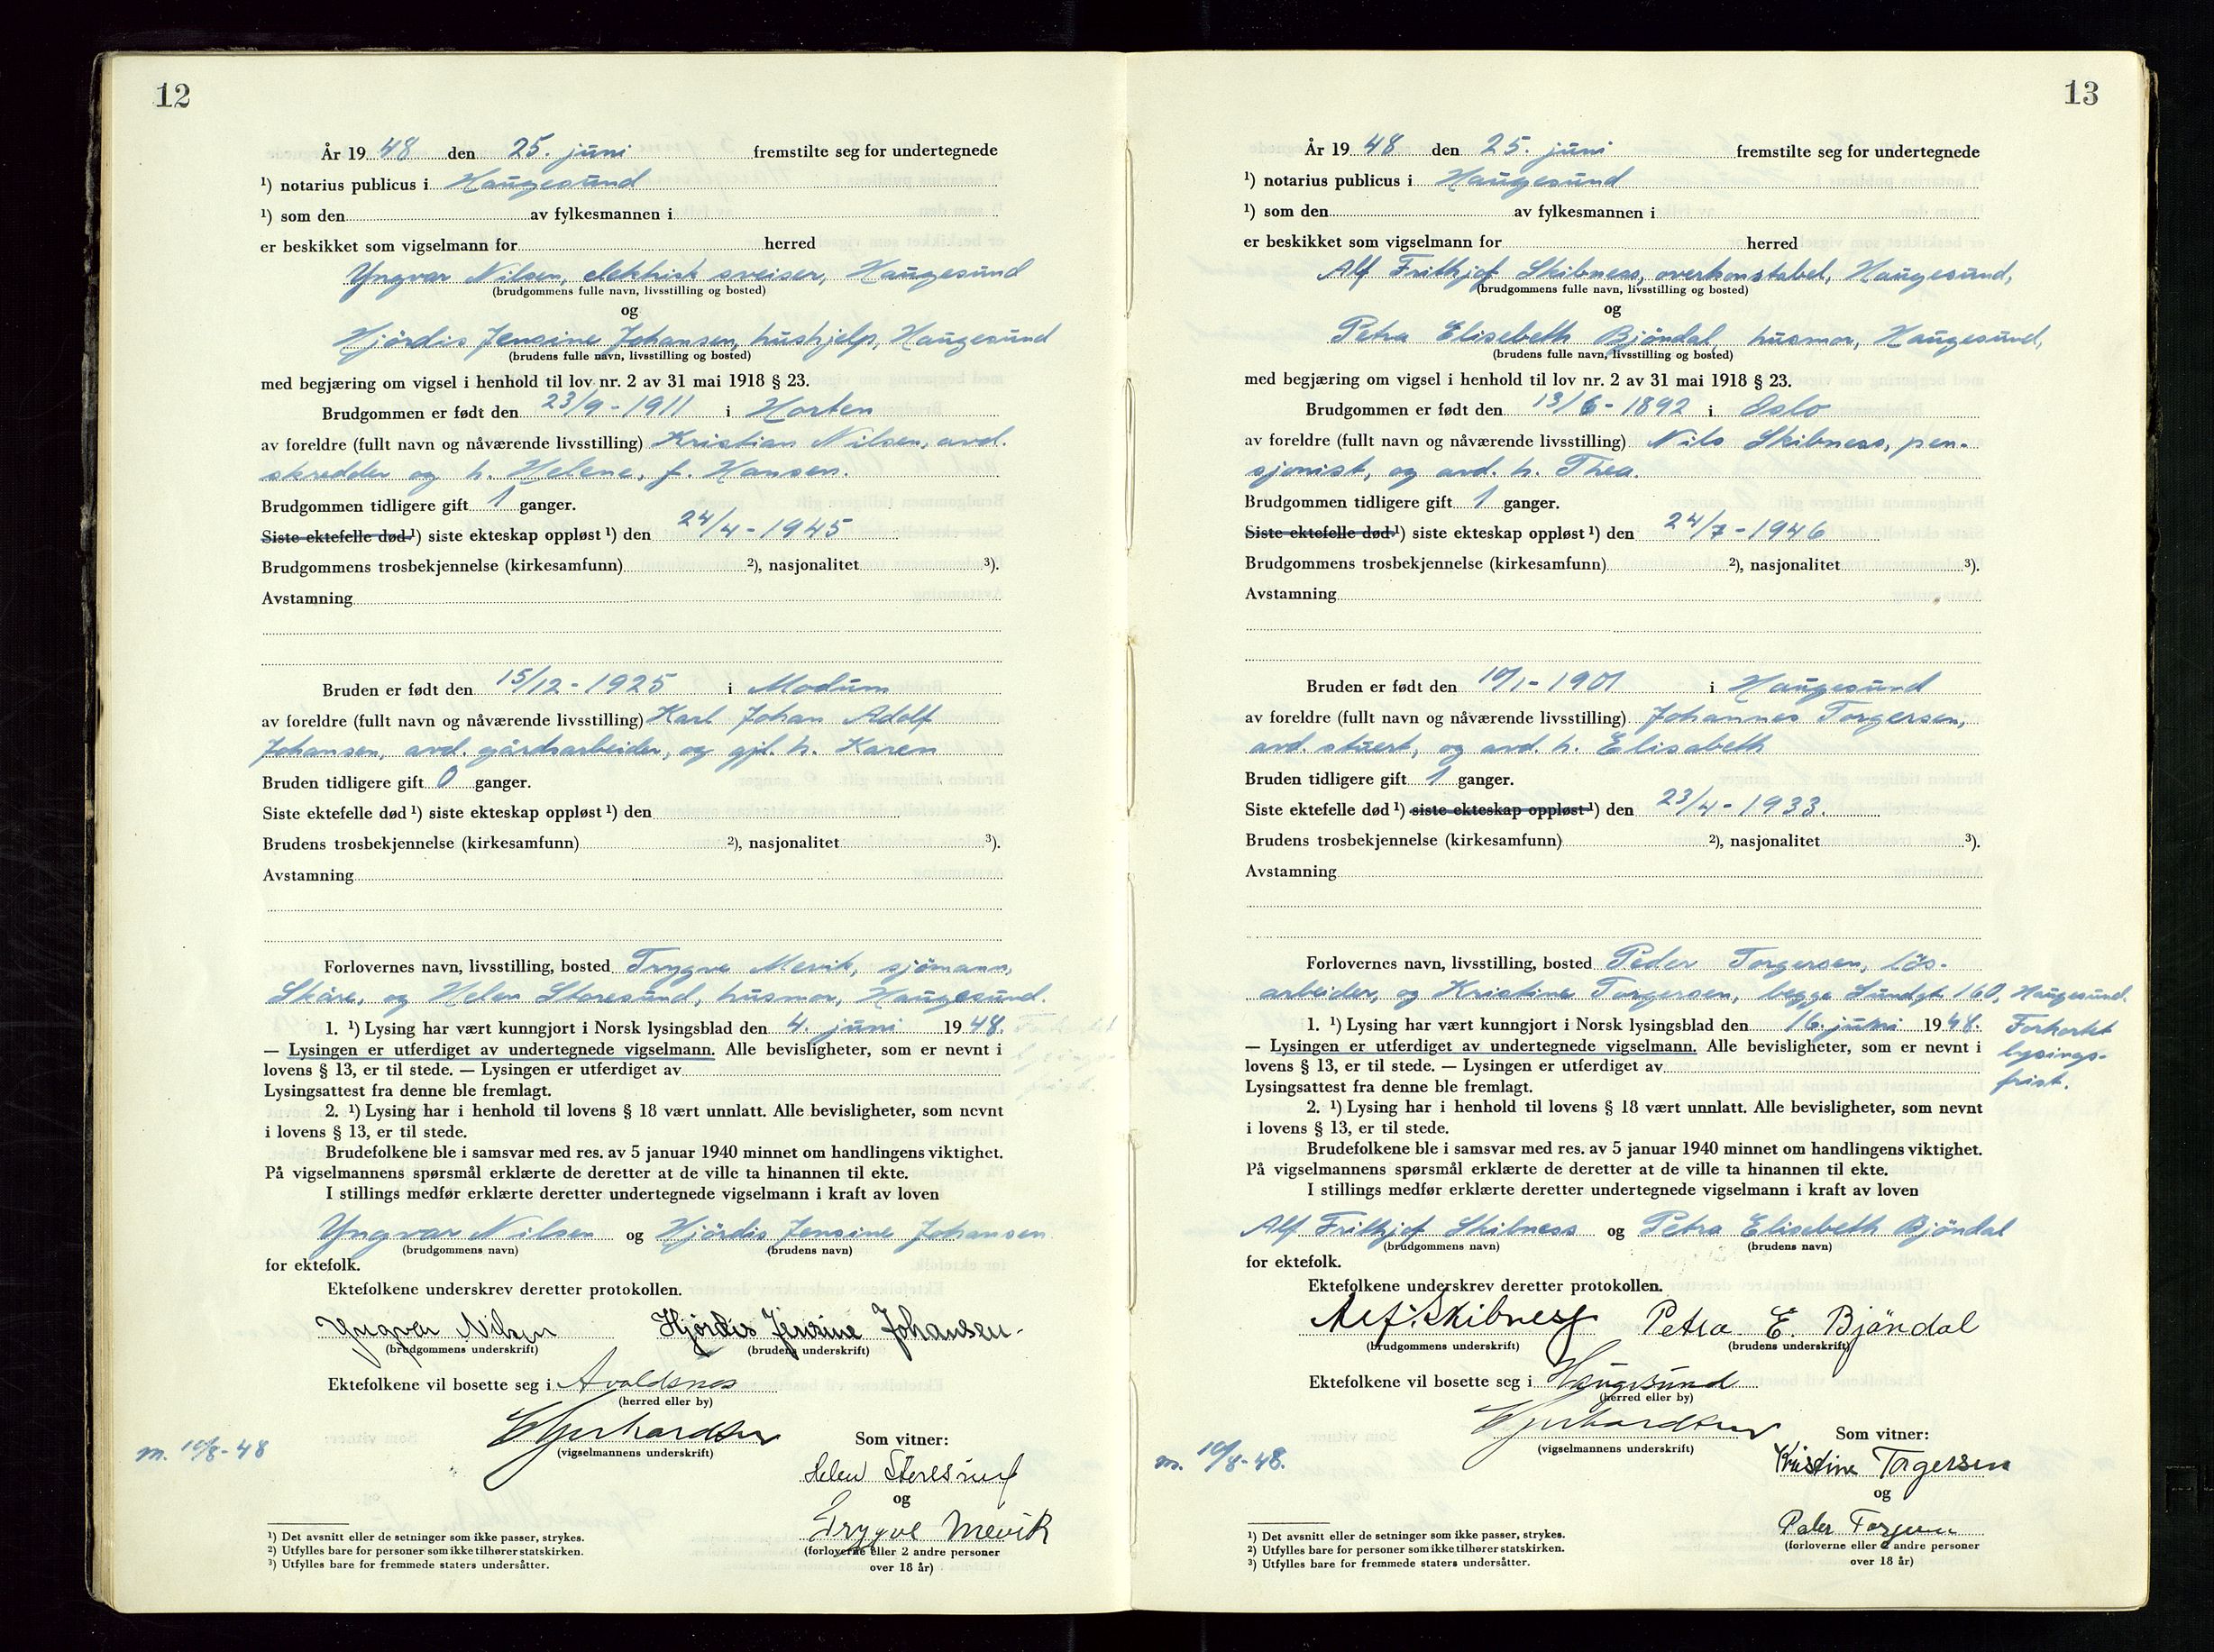 12
År 19 48 den 25. juni fremstilte seg for undertegnede
¹) notarius publicus i Haugesund
¹) som den av fylkesmannen i
er beskikket som vigselmann for herred
Yngvar Nilsen, elektrisk sveiser, Haugesund
(brudgommens fulle navn, livsstilling og bosted)
og
Hjördis Jensine Johansen, hushjelp, Haugesund
(brudens fulle navn, livsstilling og bosted)
med begjæring om vigsel i henhold til lov nr. 2 av 31 mai 1918 § 23.
Brudgommen er født den 23/9 - 1911 i Horten
av foreldre (fullt navn og nåværende livsstilling) Kristian Nilsen, avd.
skredder og h. Helene, f. Hansen.
Brudgommen tidligere gift 1 ganger.
Siste ektefelle død ¹) siste ekteskap oppløst ¹) den 24/4 - 1945
Brudgommens trosbekjennelse (kirkesamfunn) ²), nasjonalitet ³).
Avstamning
Bruden er født den 15/12 - 1925 i Modum
av foreldre (fullt navn og nåværende livsstilling) Karl Johan Adolf
Johansen, avd. gårdsarbeider, og gjl. h. Karen
Bruden tidligere gift 0 ganger.
Siste ektefelle død ¹) siste ekteskap oppløst ¹) den
Brudens trosbekjennelse (kirkesamfunn) ²), nasjonalitet ³).
Avstamning
Forlovernes navn, livsstilling, bosted Trygve Mevik, sjömann,
Skåre, og Helen Storesund, husmor, Haugesund.
1. ¹) Lysing har vært kunngjort i Norsk lysingsblad den 4. juni 19 48.
— Lysingen er utferdiget av undertegnede vigselmann. Alle bevisligheter, som er nevnt i
lovens § 13, er til stede. — Lysingen er utferdiget av
Lysingsattest fra denne ble fremlagt.
2. ¹) Lysing har i henhold til lovens § 18 vært unnlatt. Alle bevisligheter, som nevnt
i lovens § 13, er til stede.
Brudefolkene ble i samsvar med res. av 5 januar 1940 minnet om handlingens viktighet.
På vigselmannens spørsmål erklærte de deretter at de ville ta hinannen til ekte.
I stillings medfør erklærte deretter undertegnede vigselmann i kraft av loven
Yngvar Nilsen og Hjördis Jensine Johansen
(brudgommens navn) (brudens navn)
for ektefolk.
Ektefolkene underskrev deretter protokollen.
Yngvar Nilsen Hjördis Jensine Johansen.
(brudgommens underskrift) (brudens underskrift)
Ektefolkene vil bosette seg i Avaldsnes
(herred eller by)
(vigselmannens underskrift)
Som vitner:
m. 10/8 - 48
Helen Storesund
og
Trygve Mevik
(forloverne eller 2 andre personer
over 18 år)
¹) Det avsnitt eller de setninger som ikke passer, strykes.
²) Utfylles bare for personer som ikke tilhører statskirken.
³) Utfylles bare for fremmede staters undersåtter.
13
År 19 48 den 25. juni fremstilte seg for undertegnede
¹) notarius publicus i Haugesund
¹) som den av fylkesmannen i
er beskikket som vigselmann for herred
Alf Frithjof Skibness, overkonstabel, Haugesund,
(brudgommens fulle navn, livsstilling og bosted)
og
Petra Elisebeth Bjöndal, husmor, Haugesund,
(brudens fulle navn, livsstilling og bosted)
med begjæring om vigsel i henhold til lov nr. 2 av 31 mai 1918 § 23.
Brudgommen er født den 13/6 - 1892 i Oslo
av foreldre (fullt navn og nåværende livsstilling) Nils Skibness, pen-
sjonist, og avd. h. Thea.
Brudgommen tidligere gift 1 ganger.
Siste ektefelle død ¹) siste ekteskap oppløst ¹) den 24/7 - 1946
Brudgommens trosbekjennelse (kirkesamfunn) ²), nasjonalitet ³).
Avstamning
Bruden er født den 10/1 - 1901 i Haugesund
av foreldre (fullt navn og nåværende livsstilling) Johannes Torgersen,
avd. stuert, og avd. h. Elisabeth
Bruden tidligere gift 1 ganger.
Siste ektefelle død ¹) siste ekteskap oppløst ¹) den 23/4 - 1933.
Brudens trosbekjennelse (kirkesamfunn) ²), nasjonalitet ³).
Avstamning
Forlovernes navn, livsstilling, bosted Peder Torgersen, lös-
arbeider, og Kristine Torgersen, begge Sundgt. 160, Haugesund.
1. ¹) Lysing har vært kunngjort i Norsk lysingsblad den 16. juni 19 48. Forkortet
— Lysingen er utferdiget av undertegnede vigselmann. Alle bevisligheter, som er nevnt i lysings-
lovens § 13, er til stede. — Lysingen er utferdiget av frist.
Lysingsattest fra denne ble fremlagt.
2. ¹) Lysing har i henhold til lovens § 18 vært unnlatt. Alle bevisligheter, som nevnt
i lovens § 13, er til stede.
Brudefolkene ble i samsvar med res. av 5 januar 1940 minnet om handlingens viktighet.
På vigselmannens spørsmål erklærte de deretter at de ville ta hinannen til ekte.
I stillings medfør erklærte deretter undertegnede vigselmann i kraft av loven
Alf Frithjof Skibness og Petra Elisebeth Bjöndal
(brudgommens navn) (brudens navn)
for ektefolk.
Ektefolkene underskrev deretter protokollen.
Alf. Skibness Petra E. Bjöndal
(brudgommens underskrift) (brudens underskrift)
Ektefolkene vil bosette seg i Haugesund
(herred eller by)
(vigselmannens underskrift)
Som vitner:
m. 10/8 - 48.
Kristine Torgersen
og
Peder Torgersen
(forloverne eller 2 andre personer
over 18 år)
¹) Det avsnitt eller de setninger som ikke passer, strykes.
²) Utfylles bare for personer som ikke tilhører statskirken.
³) Utfylles bare for fremmede staters undersåtter.